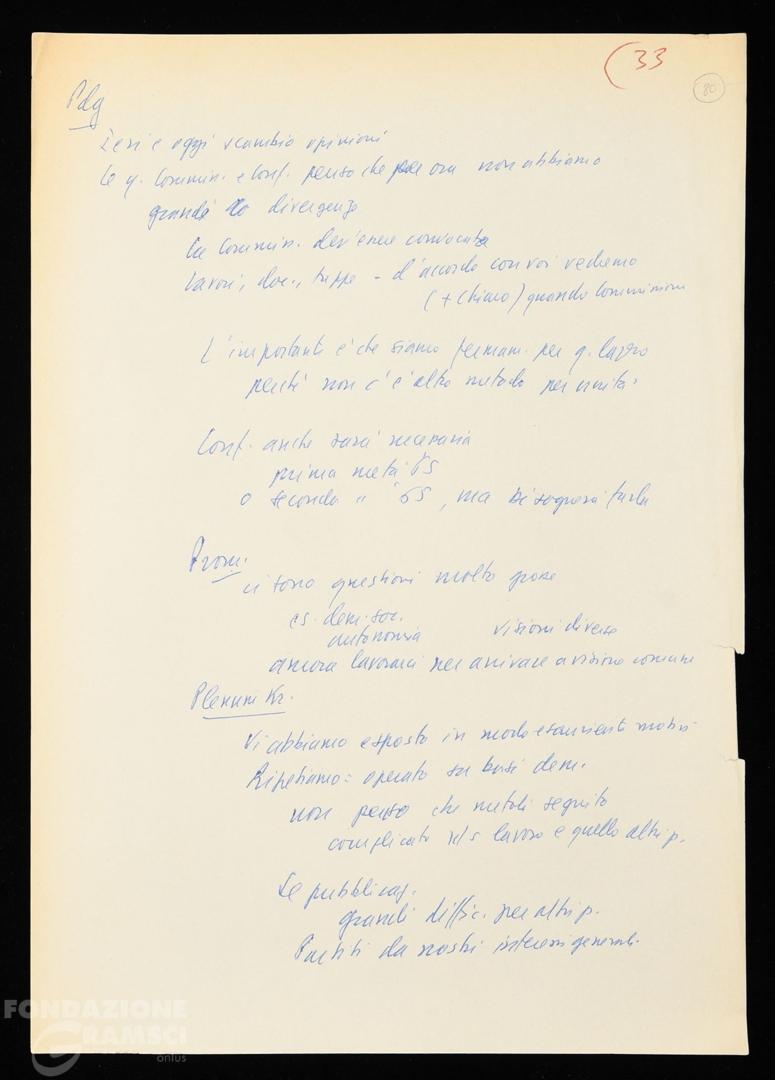 (33
80
Pdg
Ieri e oggi scambio opinioni
Le q. Commiss. e Conf. penso che per ora non abbiamo
grandi divergenze
La Commiss. dev'essere convocata
lavori, doc., tappe - d'accordo con voi vedremo
(+ chiaro) quando Commissione
L'importante è che siamo fermam. per q. lavoro
perché non c'è altro metodo per unità.
Conf. anche sarà necessaria
prima metà 65
o seconda " 65, ma bisognerà farla
Prom.
ci sono questioni molto grosse
es. dem. soc.
autonomia visioni diverse
ancora lavorare per arrivare a visione comune
Plenum Kr.
Vi abbiamo esposto in modo esauriente motivi
Ripetiamo: operato su basi dem.
non penso che metodi seguito
complicato n/s lavoro e quello altri p.
Se pubblicaz.
grandi diffic. per altri p.
Partiti da nostri interessi generali.
FONDAZIONE
GRAMSCI
onlus